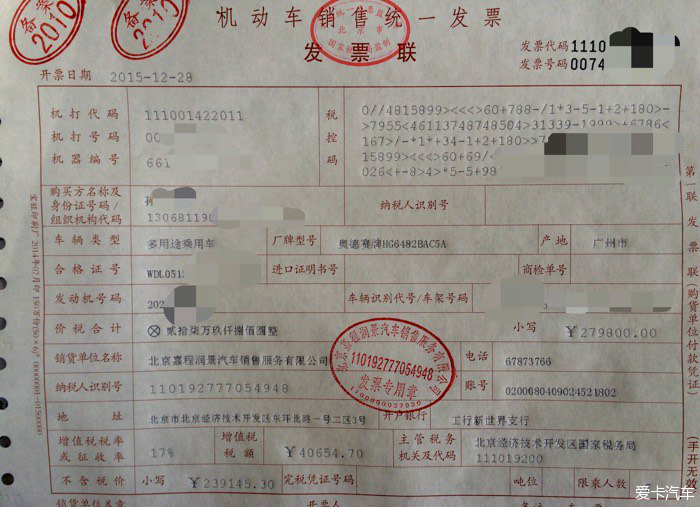 备案
2010
备案
2010
机动车销售统一发票
统一发票监
北京市
国家税务局监制
发票联
发票代码1110
发票号码0074
开票日期 2015-12-28
机打代码 111001422011
机打号码 00
机器编号 661
税控码
0//4815899><<<>60+788-/1*3-5-1+2+180>-
>7955<46113748748504>31339-1999>+6786<
167>/-*1*+34-1+2+180>>7
15899><<<>60+69/<
026<+-8>4>*5-5+98
购买方名称及
身份证号码/
组织机构代码
13068119
纳税人识别号
车辆类型 多用途乘用车 厂牌型号 奥德赛牌HG6482BAC5A 产地 广州市
合格证号 WDL051 进口证明书号 商检单号
发动机号码 202 车辆识别代号/车架号码
价税合计 ⊗贰拾柒万玖仟捌佰圆整 小写 ￥279800.00
销货单位名称 北京嘉程润景汽车销售服务有限公司 电话 67873766
纳税人识别号 110192777054948 账号 0200080409024521802
北京嘉程润景汽车销售服务有限公司
110192777054948
发票专用章
地址 北京市北京经济技术开发区东环北路一号二区3号 开户银行 工行新世界支行
增值税税率
或征收率
17%
增值税
税额
￥40654.70
主管税务
机关及代码
北京经济技术开发区国家税务局
111019200
不含税价 小写 ￥239145.30 完税凭证号码 吨位 限乘人数
销货单位盖章 开票人 备注
第一联 发票联(购货单位付款凭证)
(手开无效)
爱卡汽车